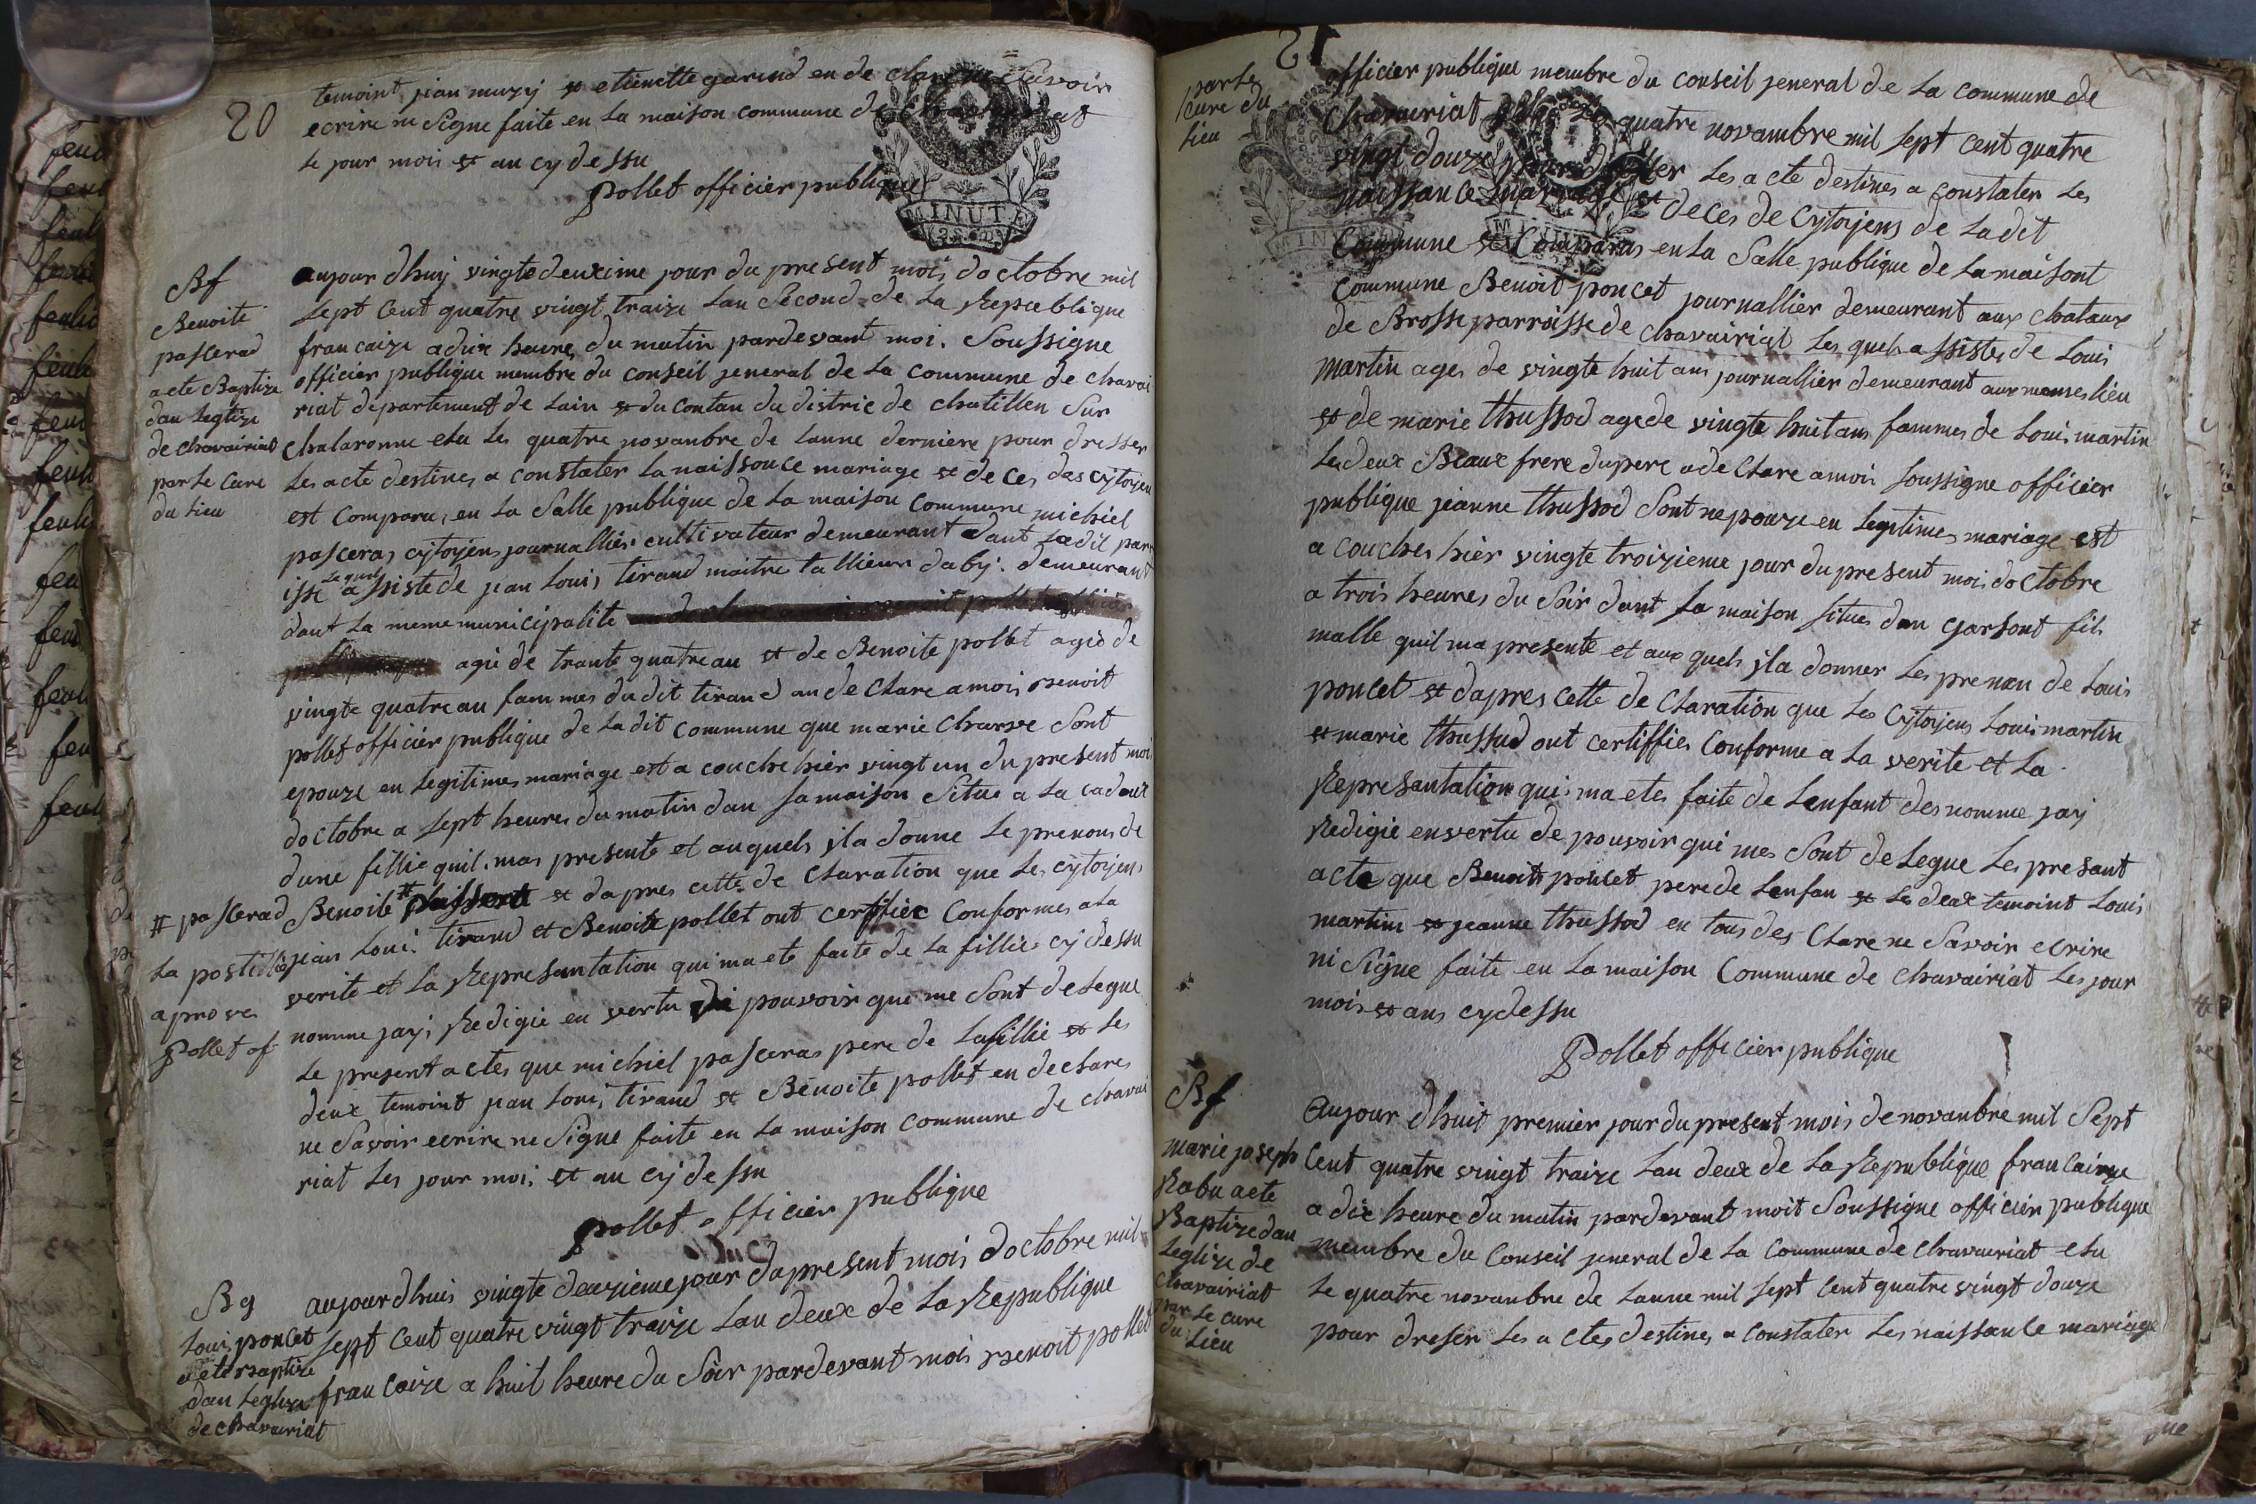 20
temoint jean muzy et etienette garind en de clare ne Savoir
ecrire ne Signe faite en La maison commune de
Le jour mois et an cy dessu
Pollet officier publique
MINUTE
Bf
Benoite
pascerad
acte Baptize
dan Leglize
de chavairiat
par Le Cure
du Lieu
aujour dhuy vingte deuxime jour du present mois doctobre mil
Sept Cent quatre vingt traize Lan Second de La Republique
francaize a dix heure du matin pardevant moi Soussigne
officier publique membre du conseil jeneral de La commune de chavai
riat departement de Lain et du Contan du distric de chatillon Sur
chalaronne elu Les quatre novanbre de Lanne derniere pour dresser
Les acte destines a constater La naissance mariage et de ces des cytoyen
est Comparu, en La Salle publique de La maison Commune michiel
pasceras cytoyens journallier cultivateur demeurant dant Ladit parr
isse Le quel assiste de jean Louis tirand maitre tallieur daby. demeurant
dant La meme municipalite
agie de trante quatre an et de Benoite pollet agés de
vingte quatre an fammes du dit tirand an de Clare a moi Benoit
pollet officier publique de La dit Commune que marie Charve Sont
epouze en Legitimes mariage est a couche hier vingt un du present moi
doctobre a Sept heures du matin dan Sa maison Situe a La cadoux
dune fillie quil. mas presente et auquels jl a donne Le prenons de
Benoite # et dapres cette de Claration que Les cytoyens
# pascerad
La postille
aprove
Pollet of
jean Loui. tirand et Benoite pollet ont certifiee Conformes a La
verite et La Representation qui ma ete faite de La fillie cy dessu
nomme jay Redigie en vertu de pouvoir que me Sont de Legue
Le present actes que michiel pasceras pere de La fillie et Les
deux temoint jean Loui, tirand et Benoite pollet en declares
ne Savoir ecrire ne Signe faite en La maison commune de chavai
riat Les jour moi. et an cy dessu
pollet officier publique
Bg
Loui poncet
a ete Baptize
dan Leglize
de chavairiat
aujourdhuis vingte deuzieme jour du present mois doctobre mil
Sept Cent quatre vingt traize Lan deux de La Republique
francaize a huit heure du Soir pardevant mois Benoit pollet
21
par Le
Cure du
Lieu
officier publique membre du conseil jeneral de La commune de
Chavairiat quatre novambre mil Sept Cent quatre
vingt douze Les acte destines a constater Les
naissance mariage et deces de Cytoyens de Ladit
Commune et Comparas en La Salle publique de La maisont
Commune Benoit poncet journallier demeurant aux chataux
de Brosse parroisse de chavairiat Les quels assistes de Louis
Martin ages de vingte huit ans journallier demeurant aux memes Lieu
et de marie thussod age de vingte huit ans fammes de Louis martin
Les deux Beaux frere du pere a de Clare a moi Soussigne officier
publique jeanne thussod Sont nepouze en Legitimes mariage est
a couches hier vingte troizieme jour du present mois doctobre
a trois heures du Soir dant La maison Situes dun garsont fils
malle quil ma presente et aux quels jl a donner Les prenon de Louis
poncet et dapres cette de Claration que Les Cytoyens Louis martin
et marie thussud ont certiffies Conforme a La verite et La
Representation qui. ma etes faite de Lenfant des nomme jay
Redigie en vertu de pouvoir qui mes Sont de Legue Les presant
acte que Benoit poncet pere de Lenfan et Les deux temoint Louis
martin et jeanne thussod en tous des Clare ne Savoir ecrire
ni Signe faite en La maison Commune de chavairiat Les jour
mois et ans cy dessu
Pollet officier publique
Bf
marie joseph
Rabu a ete
Baptize dan
Leglize de
chavairiat
par Le cure
du Lieu
aujour dhuit premier jour du present mois de novanbre mil Sept
Cent quatre vingt traize Lan deux de La Republique francaize
a dix heure du matin pardevant moit Soussigne officier publique
membre du Conseil jeneral de La Commune de chavairiat elu
Le quatre novanbre de Lanne mil Sept Cent quatre vingt douze
pour dreser Les actes destines a constater Les naissance mariage